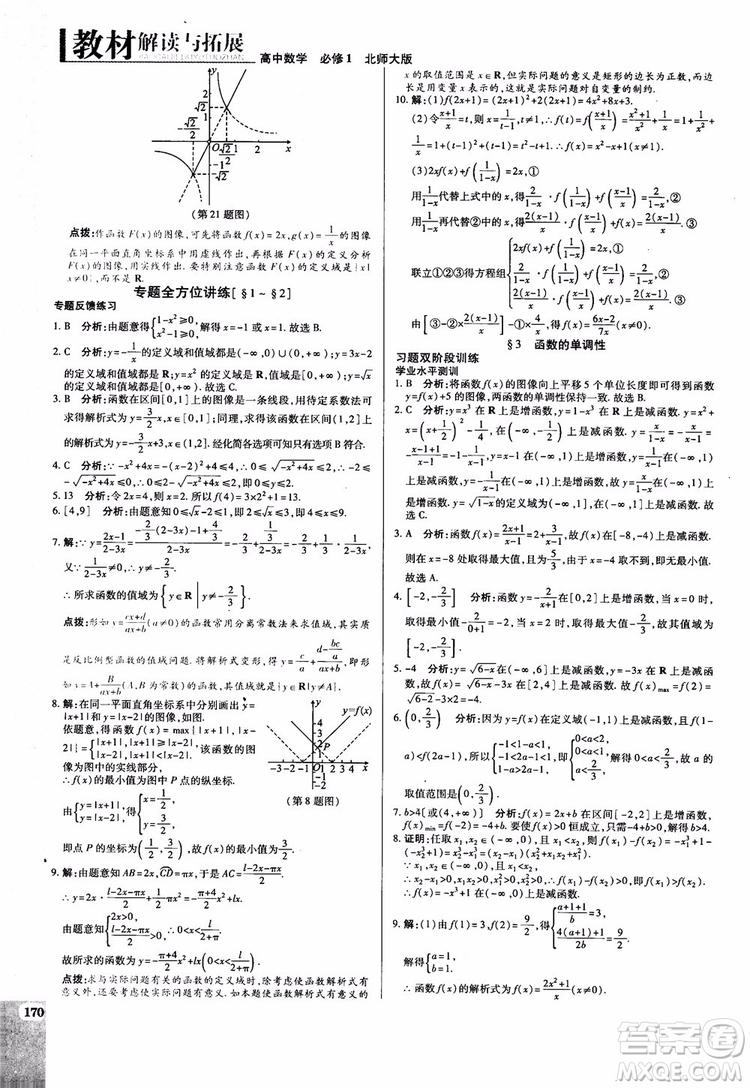 教材 解读与拓展
高中数学 必修1 北师大版
(第21题图)
点拨:作函数F(x)的图像,可先将函数f(x)=2x,g(x)=1/x的图像
在同一平面直角坐标系中用虚线作出,再根据F(x)的定义分析
F(x)的图像,用实线作出.要特别注意函数F(x)的定义域是{x|x
≠0},而不是R.
专题全方位讲练[§1~§2]
专题反馈练习
1. B 分析:由题意得{1-x²≥0, x²-1≥0,解得x=-1或x=1.故选B.
2. C 分析:y=-1/x的定义域和值域都是(-∞,0)∪(0,+∞);y=x²
的定义域是R,值域是[0,+∞).故选C.
3. B 分析:在区间[0,1]上的图像是一条线段,用待定系数法可
求得解析式为y=3/2x,x∈[0,1];同理,求得该函数在区间[1,2]上
的解析式为y=-3/2x+3,x∈[1,2].经化简各选项可知选项B符合.
4. C 分析:∵-x²+4x=-(x-2)²+4≤4,∴0≤√-x²+4x≤2.∴-2≤
-√-x²+4x≤0,0≤2-√-x²+4x≤2.故选C.
5. 13 分析:令2x=4,则x=2.所以f(4)=3×2²+1=13.
6. [4,9] 分析:由题意知0≤√x-2≤1,∴2≤√x≤3.∴4≤x≤9.
7. 解:∵y=(2x-1)/(2-3x)=(-2/3(2-3x)-1+4/3)/(2-3x)=-2/3+(1/3)/(2-3x),
又∵(1/3)/(2-3x)≠0,∴y≠-2/3.
∴所求函数的值域为{y|y∈R且y≠-2/3}.
点拨:形如y=(cx+d)/(ax+b)(a≠0)的函数常用分离常数法来求值域,其实质
是反比例型函数的值域问题.将解析式变形,得y=c/a+(d-bc/a)/(ax+b),即形
如y=A+B/(ax+b)(A,B为常数)的函数值域为{y|y≠A}.
8. 解:在同一平面直角坐标系中分别画出y=
|x+1|和y=|x-2|的图像,如图.
依题意,得函数f(x)=max{|x+1|,|x-
2|}={|x+1|,x≥1/2, |x-2|,x<1/2,该函数的图
像为图中的实线部分,
∴f(x)的最小值为图中P点的纵坐标.
(第8题图)
由{y=|x+1|, y=|x-2|,得{x=1/2, y=3/2,
即点P的坐标为(1/2,3/2),故f(x)的最小值为3/2.
9. 解:由题意知AB=2x,CD=πx,于是AC=(l-2x-πx)/2.
∴y=2x·(l-2x-πx)/2+πx²/2=-(π+4)/2x²+lx.
由题意知{2x>0, (l-2x-πx)/2>0,∴0<x<l/(π+2).
故所求的函数为y=-(π+4)/2x²+lx(0<x<l/(π+2)).
点拨:求与实际问题有关的函数的定义域时,除考虑使函数解析式有
意义外,还要考虑使实际问题有意义.如本题若只考虑函数解析式有意义,
x的取值范围是x∈R,但实际问题的意义是矩形的边长为正数,
而边长是用变量x表示的,这就是实际问题对自变量的制约.
10. 解:(1)f(2x+1)=(2x+1)²+2(2x+1)=4x²+8x+3.
(2)令(x+1)/x=t,则x=1/(t-1),t≠1,∴f(t)=f((x+1)/x)=(x²+1)/x²+1/x
=1+1/x²+1/x=1+(t-1)²+(t-1)=t²-t+1,t≠1.
(3)2xf(x)+f(1/(1-x))=2x,①
用1/(1-x)代替上式中的x,得2/(1-x)·f(1/(1-x))+f((x-1)/x)=2/(1-x),②
用1/(1-x)再代替②中的x,得2(x-1)/x·f((x-1)/x)+f(x)=2(x-1)/x,③
联立①②③得方程组{2xf(x)+f(1/(1-x))=2x, 2/(1-x)·f(1/(1-x))+f((x-1)/x)=2/(1-x), 2(x-1)/x·f((x-1)/x)+f(x)=2(x-1)/x,
由[③-(②-①·2/(1-x))·2(x-1)/x],得f(x)=(6x-2)/7x
§3 函数的单调性
习题双阶段训练
学业水平测训
1. B 分析:将函数f(x)的图像向上平移5个单位长度即可得到函数
y=f(x)+5的图像,两个函数的单调性保持一致.故选B.
2. C 分析:y=x³在R上是增函数,y=x²在(-∞,0)上是减函数,y=x²+
x-2=(x+1/2)²-9/4在(-∞,-1/2)上是减函数.∴f(x)=-x/(x+1)=
(-x-1+1)/(x+1)=-1+1/(x+1),∴f(x)在(-∞,-1)和(-1,+∞)上是减函
数.y=√x-1的定义域为[1,+∞),在[1,+∞)上是增函数.故
选C.
3. A 分析:函数f(x)=(2x+1)/x=2+1/x,f(x)在[-8,-4)上是减函数,
故在x=-8处取得最大值15/8,而x=-4取不到,即无最小值.
故选A.
4. [-2,-2/3] 分析:y=-2/(x+1)在[0,2]上是增函数,当x=0时,y最小值=
-2/(0+1)=-2;当x=2时,y最大值=-2/(2+1)=-2/3.故其值域为
[-2,-2/3].
5. -4 分析:y=√6-x在区间[2,4]上是减函数,y=-3x在区间[2,
4]上是减函数,所以函数f(x)=√6-x-3x在区间[2,4]上的最大值f(x)max=f(2)=
√6-2-3×2=-4.
6. (0,2/3) 分析:因为y=f(x)在定义域(-1,1)上是减函数,且f(1-
a)<f(2a-1),所以{-1<1-a<1, -1<2a-1<1, 1-a>2a-1,即{0<a<2, 0<a<1, a<2/3,解得0<a<2/3.故a的
取值范围是(0,2/3).
7. b>4[或(4,+∞)] 分析:f(x)=2x+b在区间[-2,2]上是增函数,
∴f(x)min=f(-2)=-4+b.要使f(x)>0恒成立,只需-4+b>0,解得b>4.
8. 证明:任取x₁,x₂∈(-∞,0),且x₁<x₂,则f(x₁)-f(x₂)=
∵x₁,x₂∈(-∞,0),且x₁<x₂,
∴f(x)在(-∞,0)上是减函数.
9. 解:(1)由f(1)=3,f(2)=9/2,得{(a+1+1)/b=3, (4(a+1)+1)/2b=9/2,
解得{a=1, b=1.∴函数f(x)的解析式为f(x)=(2x²+1)/x.
170
答案圈
MXQE.COM